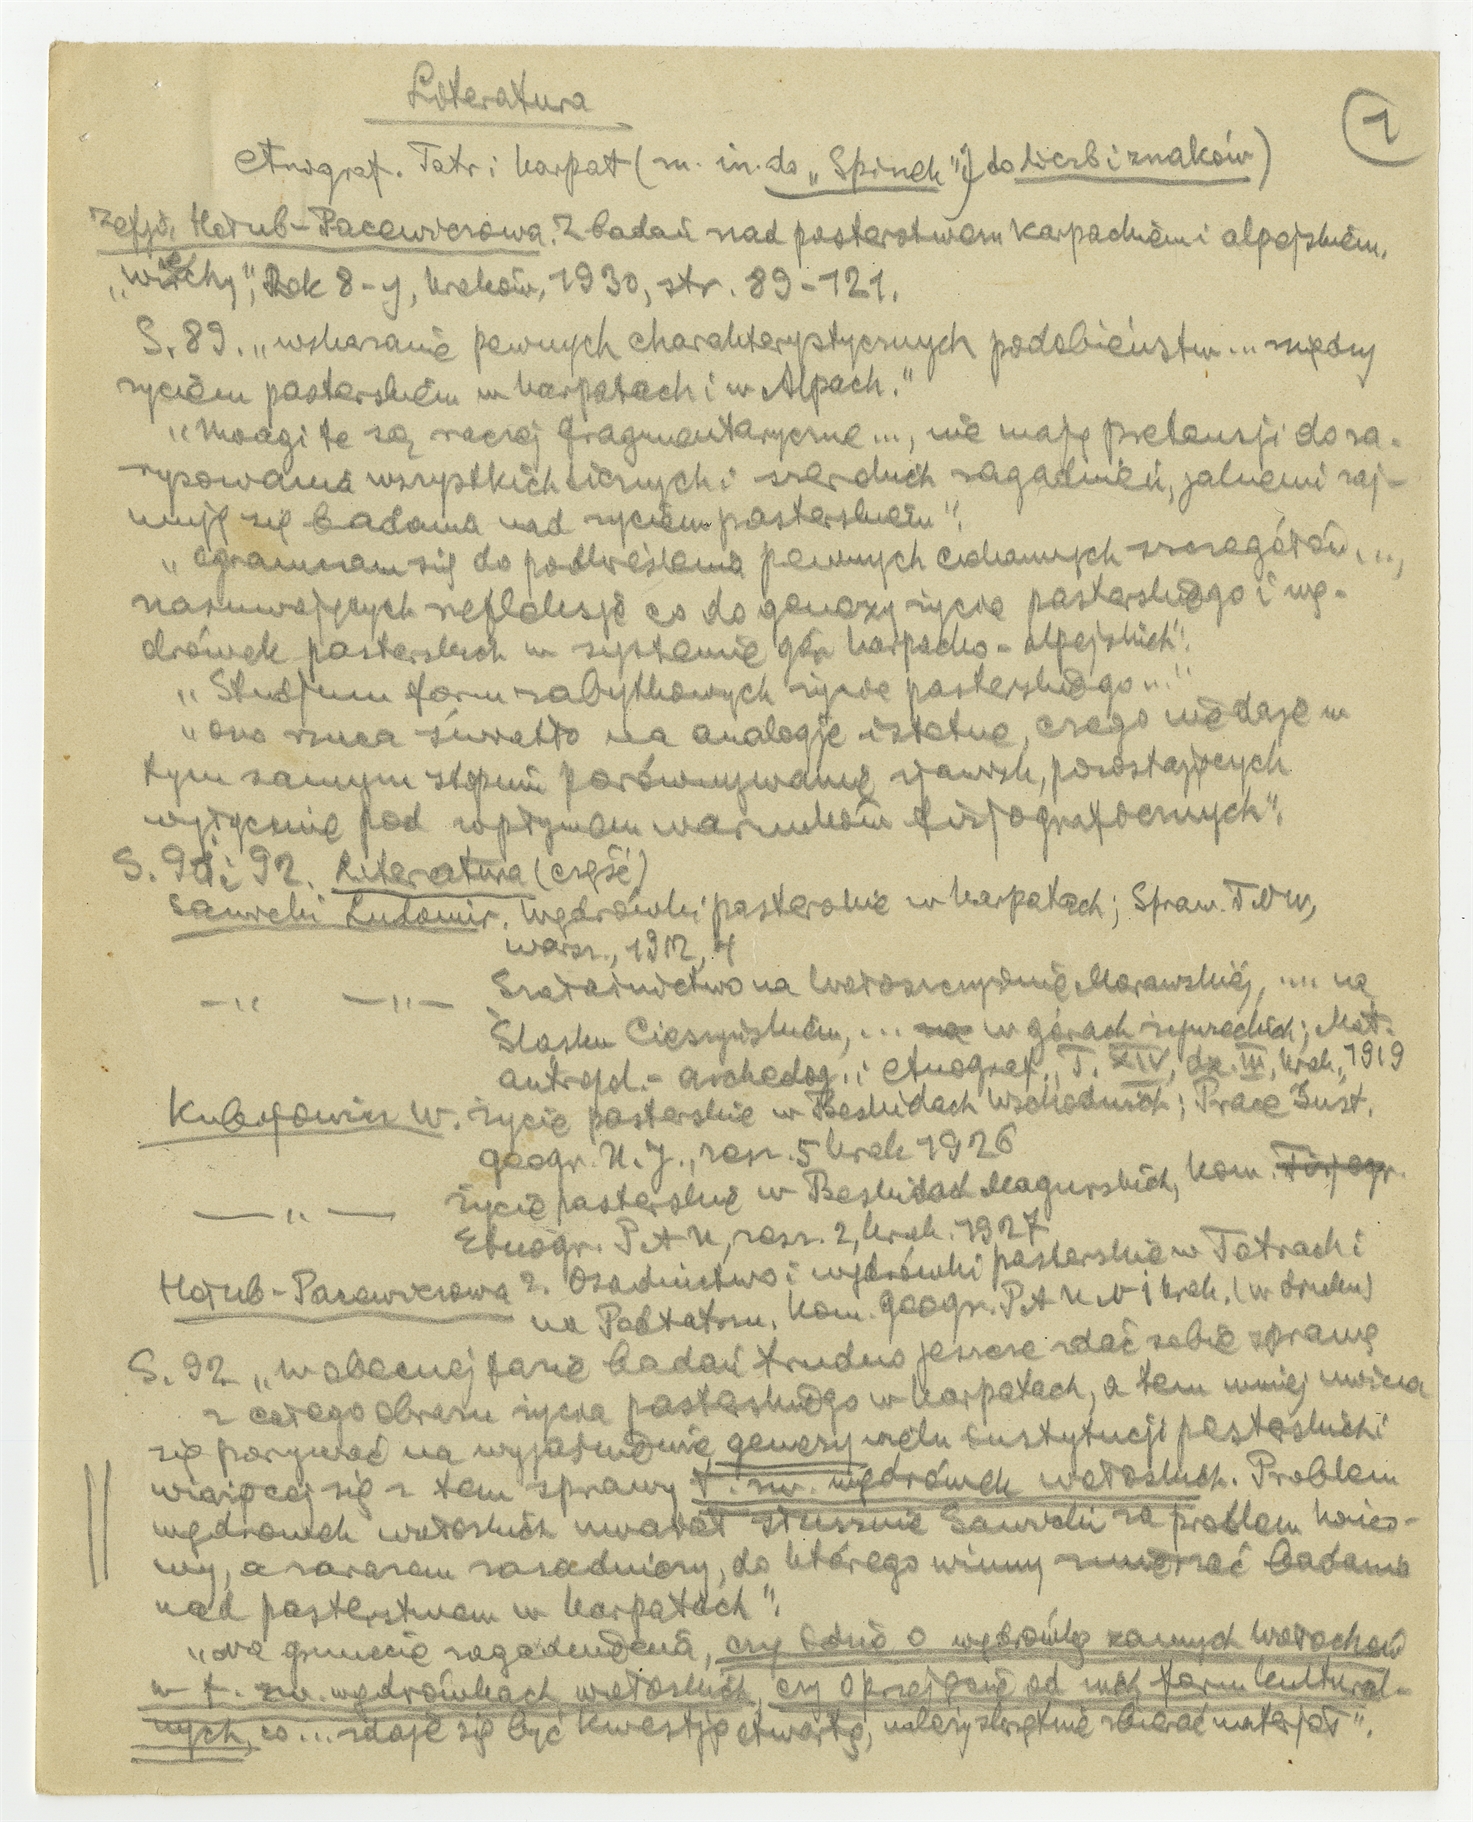 Literatura
1
etnograf. Tatr i Karpat (m. in. do „Spinek" i do liczb i znaków)
Zofja Hołub-Pacewiczowa. Z badań nad pasterstwem karpackiem i alpejskiem.
„Wierchy", Rok 8-y, Kraków, 1930, str. 89-121.
S. 89. „wskazanie pewnych charakterystycznych podobieństw... między
życiem pasterskiem w Karpatach i w Alpach."
„Uwagi te są raczej fragmentaryczne..., nie mają pretensji do za-
rysowania wszystkich licznych i szerokich zagadnień, jakiemi zaj-
mują się badania nad życiem pasterskiem".
„ograniczam się do podkreślenia pewnych ciekawych szczegółów...,
nasuwających refleksje co do genezy życia pasterskiego i wę-
drówek pasterskich w systemie gór karpacko-alpejskich".
„Studjum form zabytkowych życia pasterskiego..."
„ono rzuca światło na analogje istotne, czego nie daje w
tym samym stopniu porównywanie zjawisk, pozostających
wyłącznie pod wpływem warunków fizjograficznych".
S. 91 i 92. Literatura (część)
Sawicki Ludomir. Wędrówki pasterskie w Karpatach; Spraw. TNW,
Warsz., 1912, 4
—„— —„— Szałaśnictwo na Wołoszczyźnie Morawskiej, .... na
Śląsku Cieszyńskiem, ... na w górach żywieckich; Mat.
antropol.-archeolog. i etnograf., T. XIV, dz. III, Krak., 1919
Kubijowicz W. Życie pasterskie w Beskidach Wschodnich; Prace Inst.
geogr. U. J., zesz. 5 Krak 1926
—„— Życie pasterskie w Beskidach Magurskich, Kom. Fizjogr.
Etnogr. P A U, zesz. 2, Krak. 1927
Hołub-Pacewiczowa Z. Osadnictwo i wędrówki pasterskie w Tatrach i
na Podtatrzu. Kom. geogr. P A U N 1 Krak. (w druku)
S. 92 „W obecnej fazie badań trudno jeszcze zdać sobie sprawę
z całego obrazu życia pasterskiego w Karpatach, a tem mniej można
się porywać na wyjaśnienie genezy wielu instytucji pasterskich i
wiążącej się z tem sprawy t. zw. wędrówek wołoskich. Problem
wędrówek wołoskich uważał słusznie Sawicki za problem końco-
wy, a zarazem zasadniczy, do którego winny zmierzać badania
nad pasterstwem w Karpatach".
„Na gruncie zagadnienia, czy idzie o wędrówkę samych Wołochów
w t. zw. wędrówkach wołoskich, czy o przejęcie od nich form kultural-
nych, co... zdaje się być kwestją otwartą, należy skrzętnie zbierać materjał".